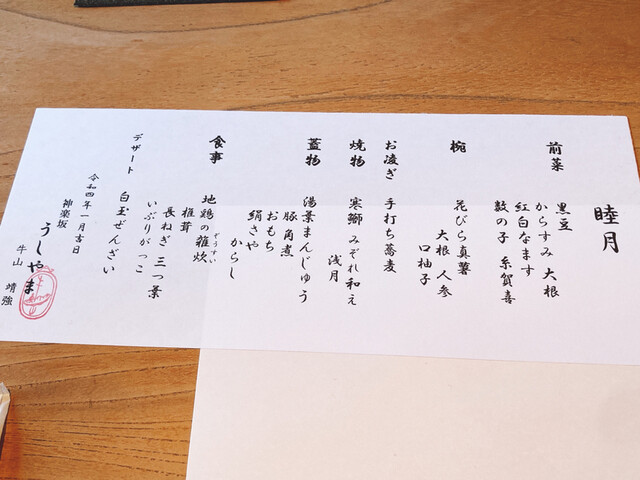 睦月
前菜
黒豆
からすみ 大根
紅白なます
数の子 糸賀喜
椀
花びら真薯
大根 人参
口柚子
お凌ぎ 手打ち蕎麦
焼物 寒鰤みぞれ和え
浅月
蓋物 湯葉まんじゅう
豚角煮
おもち
絹さや
からし
食事
地鶏の雑炊
ぞうすい
椎茸
長ねぎ 三つ葉
いぶりがっこ
デザート 白玉ぜんざい
令和四年一月吉日
神楽坂
うしやま
牛山 靖強